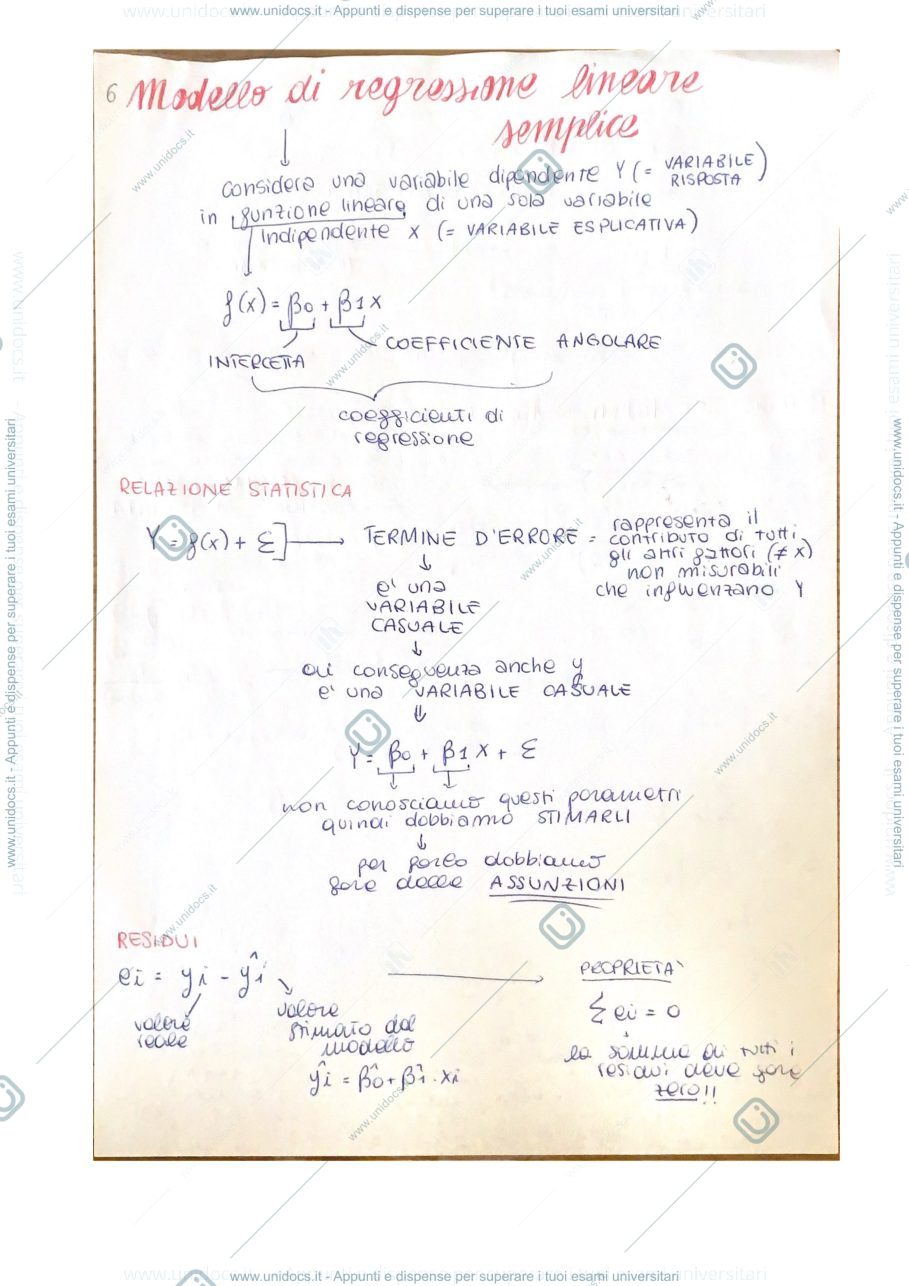 www.unidocs.it - Appunti e dispense per superare i tuoi esami universitari
6 Modello di regressione lineare
semplice
considera una variabile dipendente Y (= VARIABILE RISPOSTA)
in funzione lineare di una sola variabile
indipendente x (= VARIABILE ESPLICATIVA)
f(x) = β0 + β1 x
INTERCETTA
COEFFICIENTE ANGOLARE
coefficienti di
regressione
RELAZIONE STATISTICA
Y = f(x) + ε] → TERMINE D'ERRORE = rappresenta il
contributo di tutti
gli altri fattori (≠ x)
non misurabili
che influenzano Y
↓
e' una
VARIABILE
CASUALE
↓
di conseguenza anche y
e' una VARIABILE CASUALE
⇓
Y = β0 + β1 x + ε
non conosciamo questi parametri
quindi dobbiamo STIMARLI
↓
per farlo dobbiamo
fare delle ASSUNZIONI
RESIDUI
ei = yi - ŷi
valore
reale
valore
stimato dal
modello
ŷi = β̂0 + β̂1 · xi
PROPRIETA'
Σ ei = 0
↓
la somma di tutti i
residui deve fare
zero!!
www.unidocs.it - Appunti e dispense per superare i tuoi esami universitari
www.unidocs.it - Appunti e dispense per superare i tuoi esami universitari
www.unidocs.it - Appunti e dispense per superare i tuoi esami universitari
www.unidocs.it
www.unidocs.it
www.unidocs.it
www.unidocs.it
www.unidocs.it
www.unidocs.it